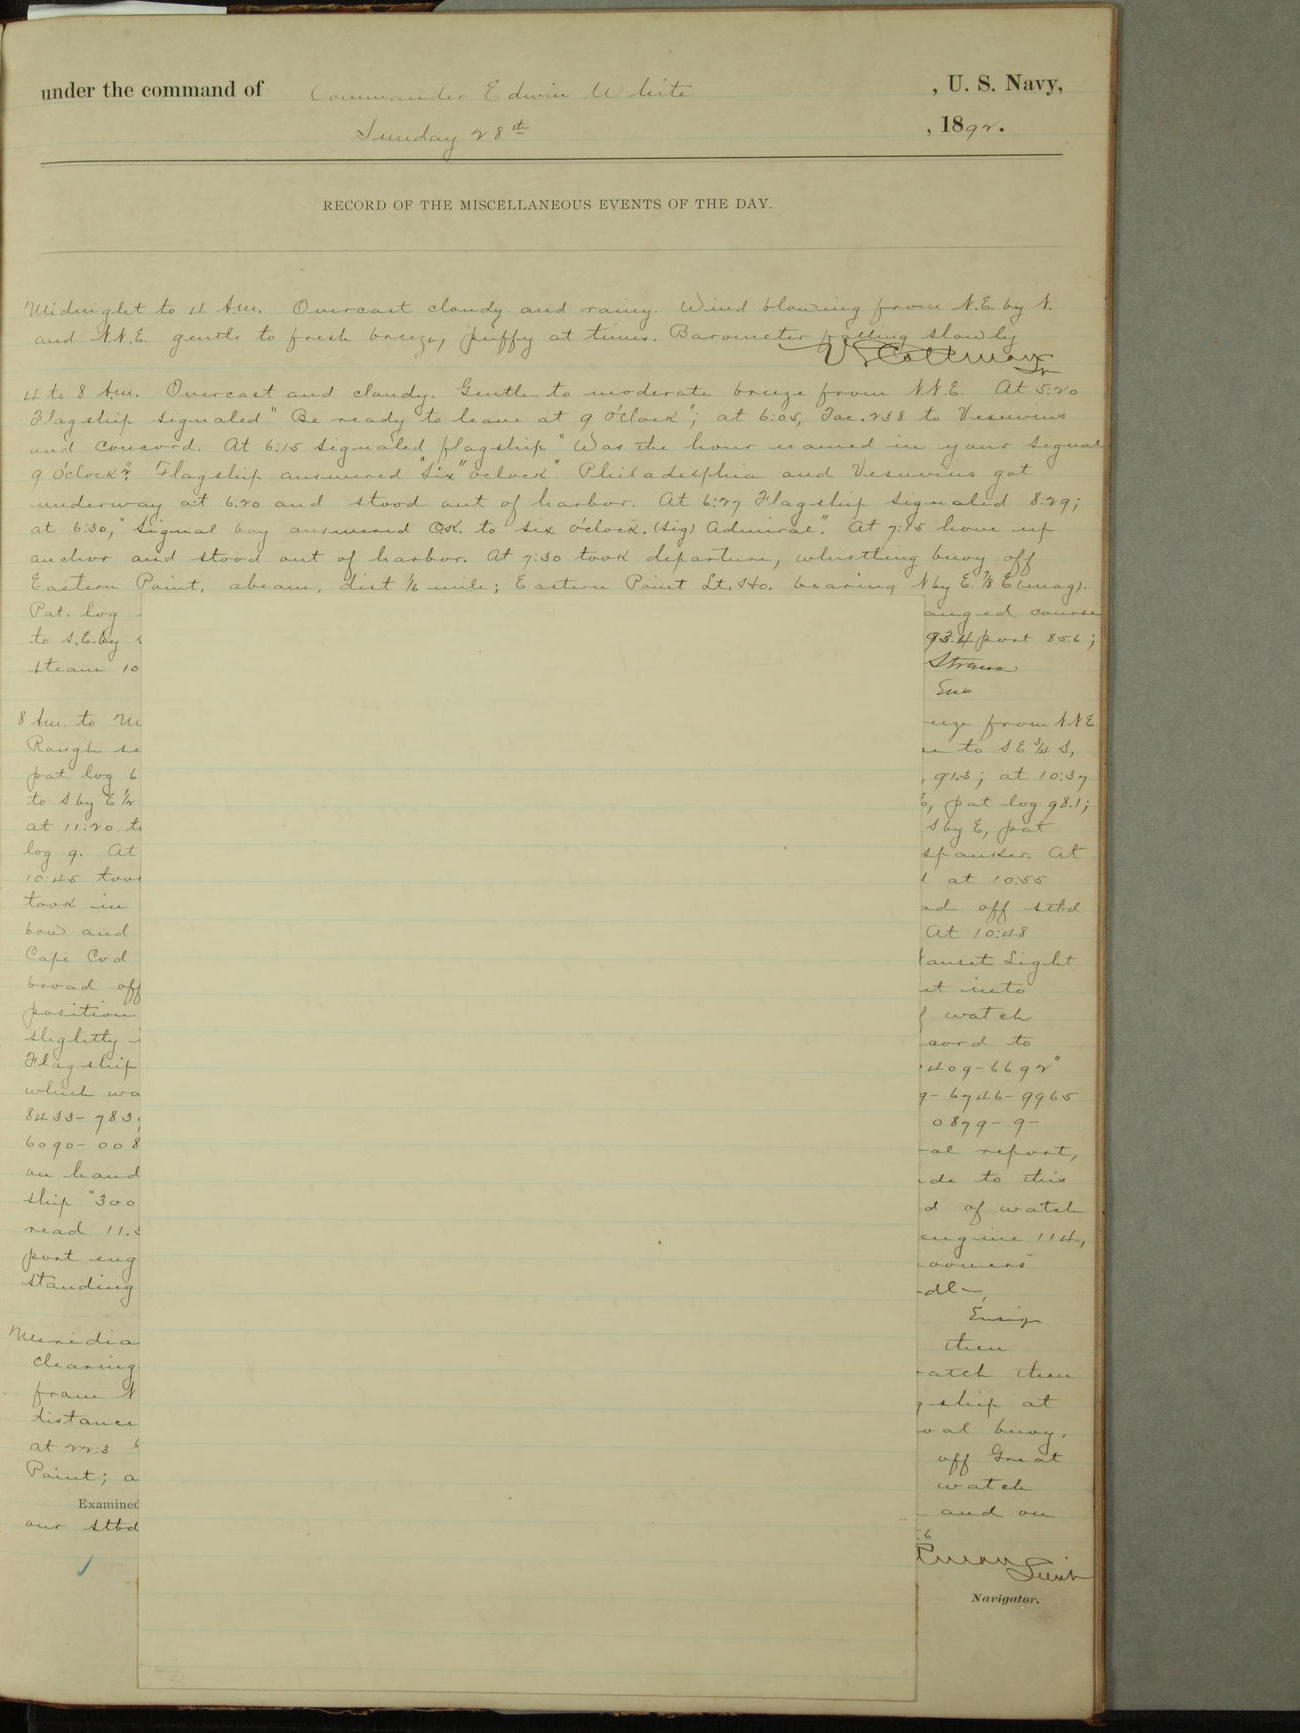 under the command of Commander Edwin White , U. S. Navy,
Sunday 28th , 1892.
RECORD OF THE MISCELLANEOUS EVENTS OF THE DAY.
Midnight to 4 Am. Overcast cloudy and rainy. Wind blowing from N.E. by N.
and N.N.E. gentle to fresh breeze, puffy at times. Barometer falling slowly
4 to 8 Am. Overcast and cloudy. Gentle to moderate breeze from N.N.E. At 5:20
Flagship signaled "Be ready to leave at 9 O'Clock"; at 6:05, Tac. 238 to Vesuvius
and Concord. At 6:15 signaled flagship "Was the hour named in your signal
9 O'Clock"? Flagship answered "Six" oclock" Philadelphia and Vesuvius got
underway at 6:20 and stood out of harbor. At 6:27 Flagship signaled 8:29;
at 6:30, "Signal boy answered O.K. to six O'clock. (Sig) Admiral". At 7:15 hove up
anchor and stood out of harbor. At 7:30 took departure, whistling buoy off
Eastern Point, abeam, dist 1/6 mile; Eastern Point Lt. Ho. bearing N by E 7/8 E (mag).
Pat. log anged course
to S.E. by 93.4 port 85.6;
steam 10 Strauss
Ens
8 Am. to M eze from NNE
Rough se to SE 3/4 S,
pat log 6 , 91.3; at 10:37
to S by E 1/2 , pat log 98.1;
at 11:20 t S by E, pat
log 9. At spanker. At
10:45 too at 10:55
took in ad off stbd
bow and At 10:48
Cape Cod auset Light
broad off et into
position watch
slightly aord to
Flagship 1409-6692"
which wa 9-6746-9965
8433-783 0879-9-
6090-008 al report,
on hand de to this
ship "300 d of watch
read 11. engine 114,
port eng ooners
standing dle
Ensign
Meridia then
clearing atch then
from N ship at
distance oal buoy,
at 22.3 off Great
Point; a watch
Examined and on
our stbd .6
Navigator.